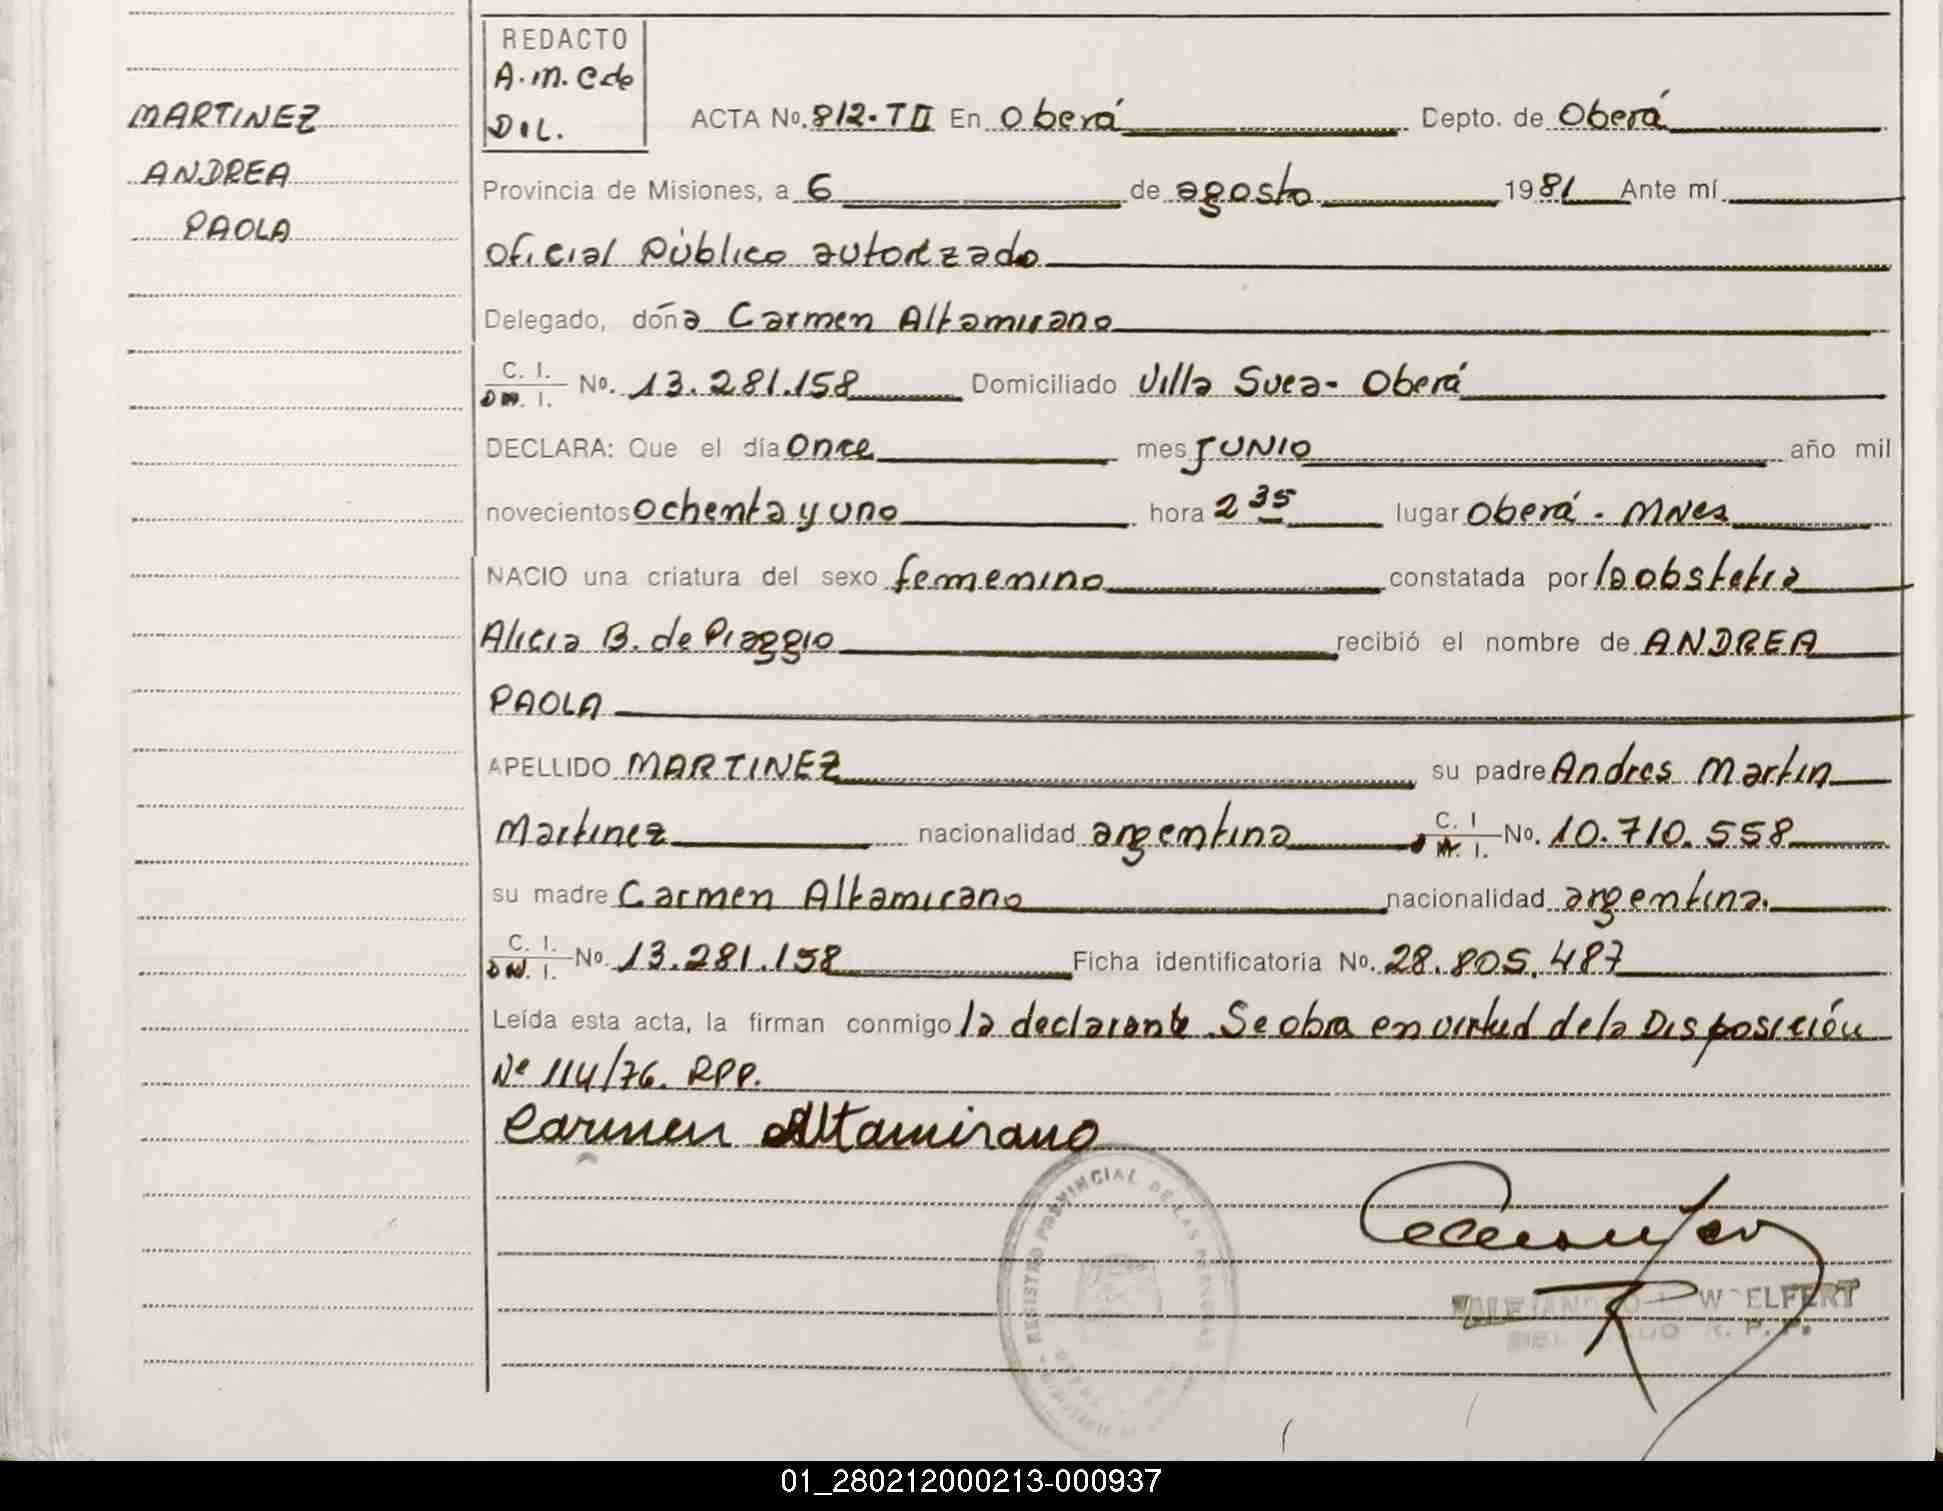 MARTINEZ
ANDREA
PAOLA
REDACTO
A.M.C de
D.L.
ACTA No. 812-TII En Oberá Depto. de Oberá
Provincia de Misiones, a 6 de agosto 1981 Ante mí
Oficial Público autorizado
Delegado, doña Carmen Altamirano
C. I. No. 13.281.158 Domiciliado Villa Svea- Oberá
DECLARA: Que el día Once mes JUNIO año mil
novecientos ochenta y uno hora 2 35 lugar Oberá - MNes
NACIO una criatura del sexo femenino constatada por la obstetra
Alicia B. de Piaggio recibió el nombre de ANDREA
PAOLA
APELLIDO MARTINEZ su padre Andres Martin
Martinez nacionalidad argentina C. I No. 10.710.558
su madre Carmen Altamirano nacionalidad argentina.
C. I. No. 13.281.158 Ficha identificatoria No. 28.805.487
Leída esta acta, la firman conmigo la declarante. Se obra en virtud de la Disposición
Nº 114/76. RPP.
Carmen Altamirano
REGISTRO PROVINCIAL DE LAS PERSONAS
R. P. P.
01_280212000213-000937